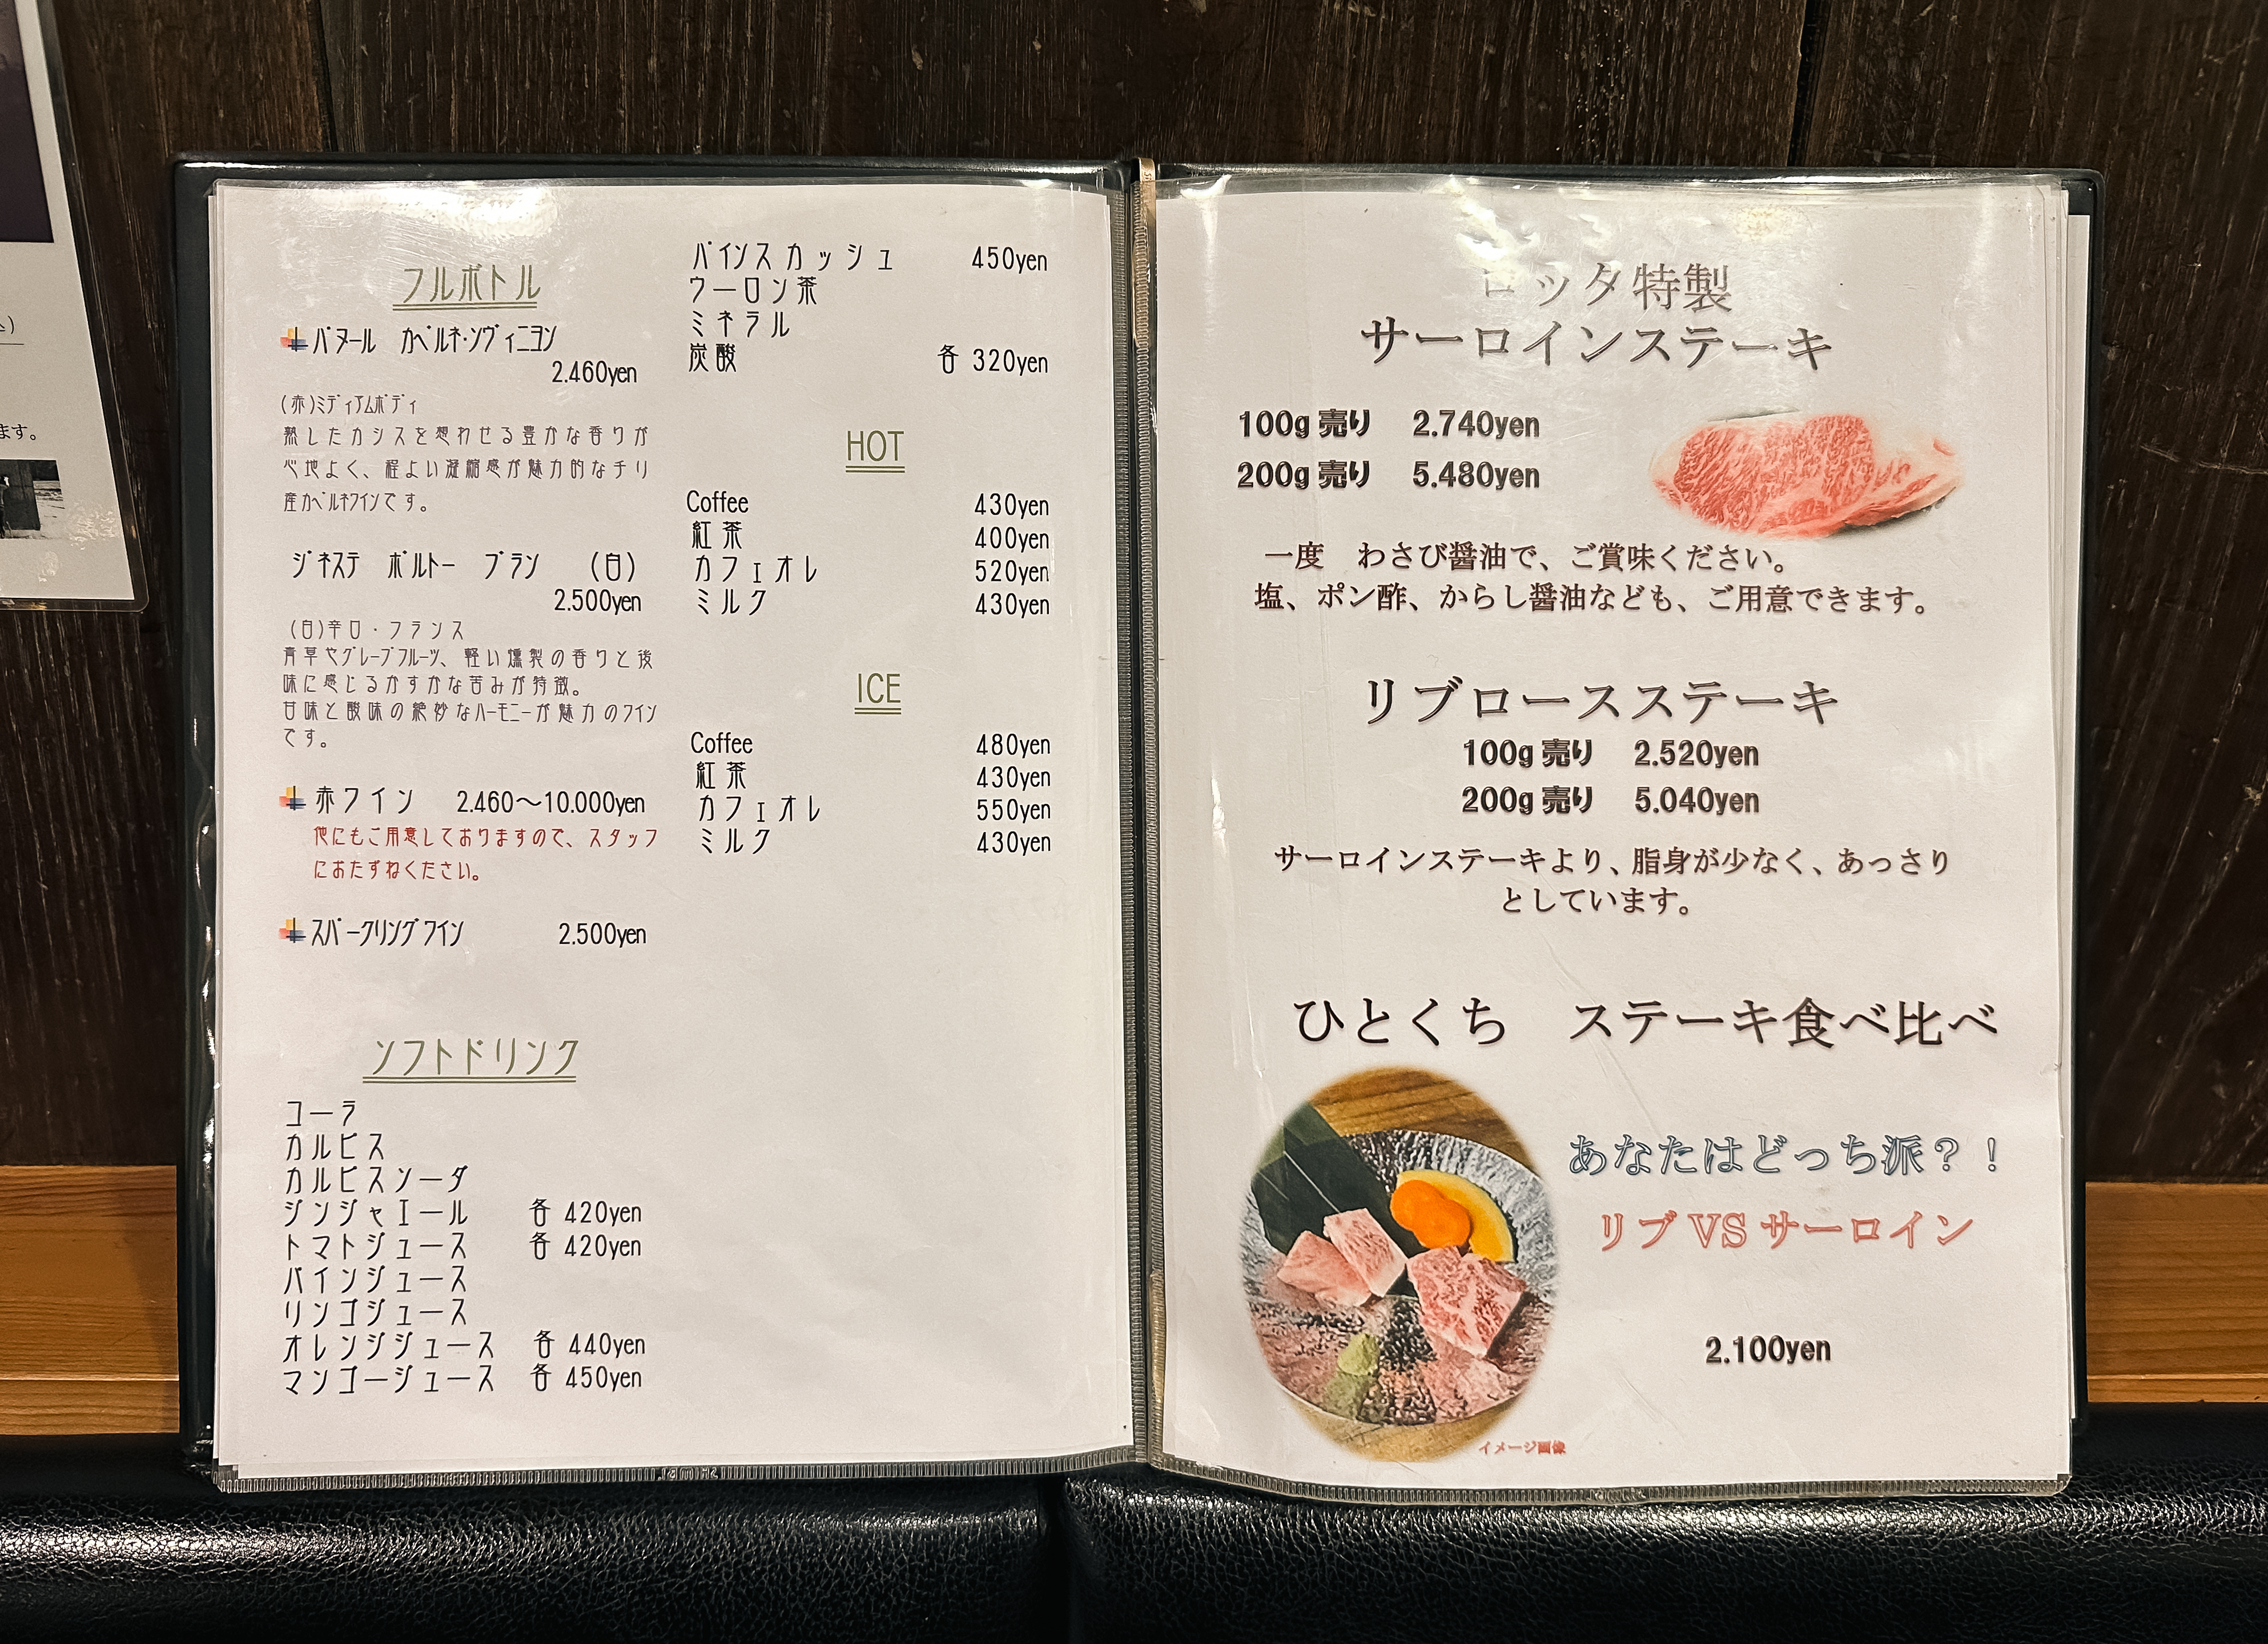 フルボトル
パヌール カベルネ・ソヴィニヨン
2.460yen
(赤)ミディアムボディ
熟したカシスを想わせる豊かな香りが
心地よく、程よい凝縮感が魅力的なチリ
産カベルネワインです。
ジネステ ボルトー ブラン (白)
2.500yen
(白)辛口・フランス
青草やグレープフルーツ、軽い燻製の香りと後
味に感じるかすかな苦みが特徴。
甘味と酸味の絶妙なハーモニーが魅力のワイン
です。
赤ワイン 2.460～10.000yen
他にもご用意しておりますので、スタッフ
におたずねください。
スパークリングワイン 2.500yen
ソフトドリンク
コーラ
カルピス
カルピスソーダ
ジンジャエール 各 420yen
トマトジュース 各 420yen
パインジュース
リンゴジュース
オレンジジュース 各 440yen
マンゴージュース 各 450yen
パインスカッシュ 450yen
ウーロン茶
ミネラル
炭酸 各 320yen
HOT
Coffee 430yen
紅茶 400yen
カフェオレ 520yen
ミルク 430yen
ICE
Coffee 480yen
紅茶 430yen
カフェオレ 550yen
ミルク 430yen
ロッタ特製
サーロインステーキ
100g 売り 2.740yen
200g 売り 5.480yen
一度 わさび醤油で、ご賞味ください。
塩、ポン酢、からし醤油なども、ご用意できます。
リブロースステーキ
100g 売り 2.520yen
200g 売り 5.040yen
サーロインステーキより、脂身が少なく、あっさり
としています。
ひとくち ステーキ食べ比べ
あなたはどっち派？！
リブ VS サーロイン
2.100yen
イメージ画像
ます。